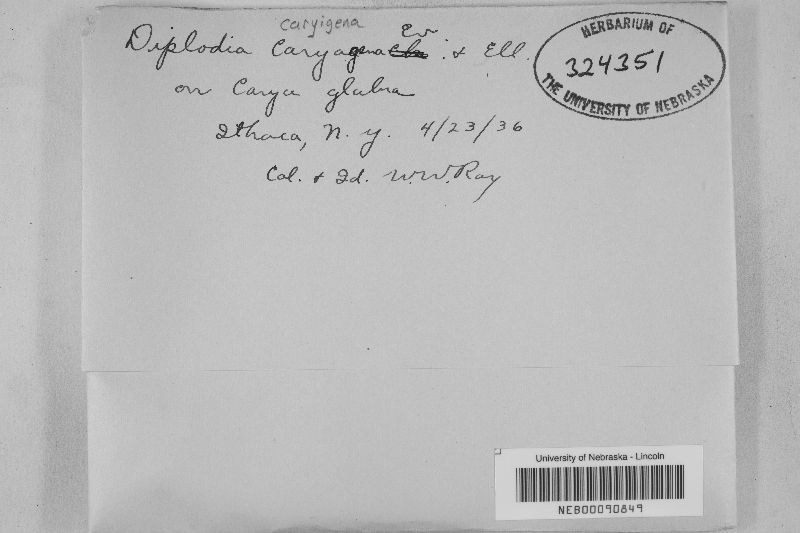 caryigena
Diplodia Caryagena Ev. & Ell.
on Carya glabra
Ithaca, N. Y. 4/23/36
Col. & Id. W.W. Ray
HERBARIUM OF
324351
THE UNIVERSITY OF NEBRASKA
University of Nebraska - Lincoln
NEB00090849